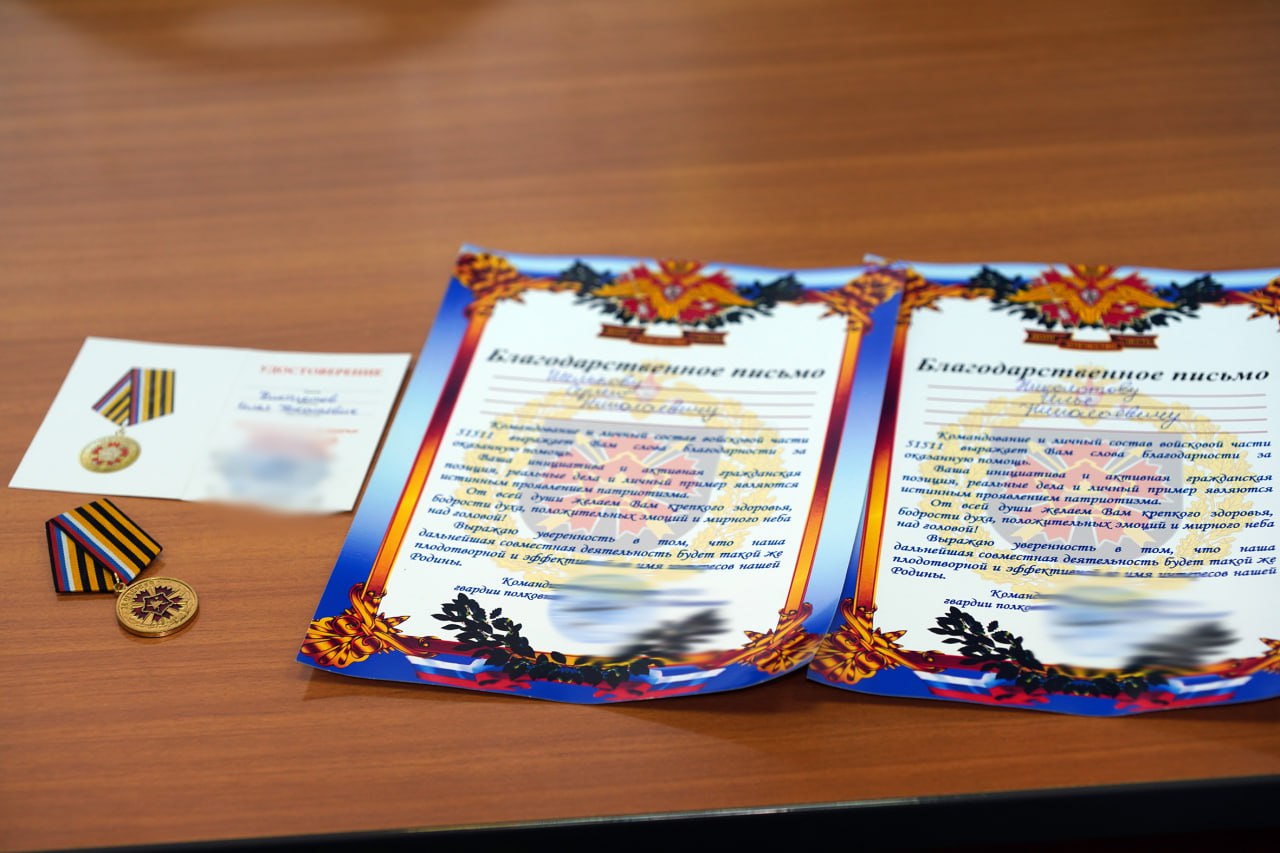 УДОСТОВЕРЕНИЕ
Благодарственное письмо
Николаевичу
Командование и личный состав войсковой части
51511 выражает Вам слова благодарности за
оказанную помощь.
Ваша инициатива и активная гражданская
позиция, реальные дела и личный пример являются
истинным проявлением патриотизма.
От всей души желаем Вам крепкого здоровья,
бодрости духа, положительных эмоций и мирного неба
над головой!
Выражаю уверенность в том, что наша
дальнейшая совместная деятельность будет такой же
плодотворной и имя интересов нашей
Родины.
гвардии
Благодарственное письмо
Илье
Николаевичу
Командование и личный состав войсковой части
51511 выражает Вам слова благодарности за
оказанную помощь.
Ваша инициатива и активная гражданская
позиция, реальные дела и личный пример являются
истинным проявлением патриотизма.
От всей души желаем Вам крепкого здоровья,
бодрости духа, положительных эмоций и мирного неба
над головой!
Выражаю уверенность в том, что наша
дальнейшая совместная деятельность будет такой же
плодотворной и имя интересов нашей
Родины.
гвардии